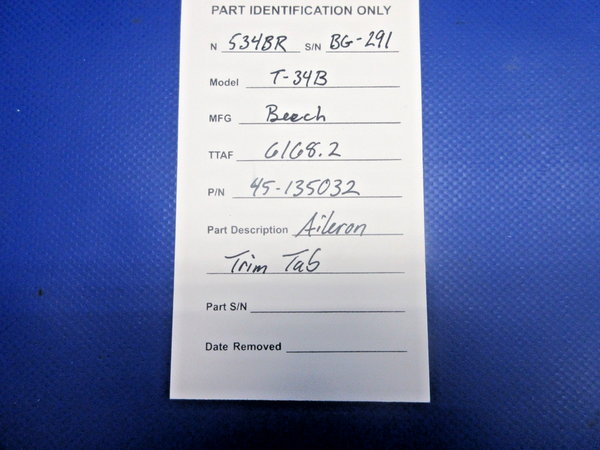 PART IDENTIFICATION ONLY
N 534BR S/N BG-291
Model T-34B
MFG Beech
TTAF 6168.2
P/N 45-135032
Part Description Aileron
Trim Tab
Part S/N
Date Removed